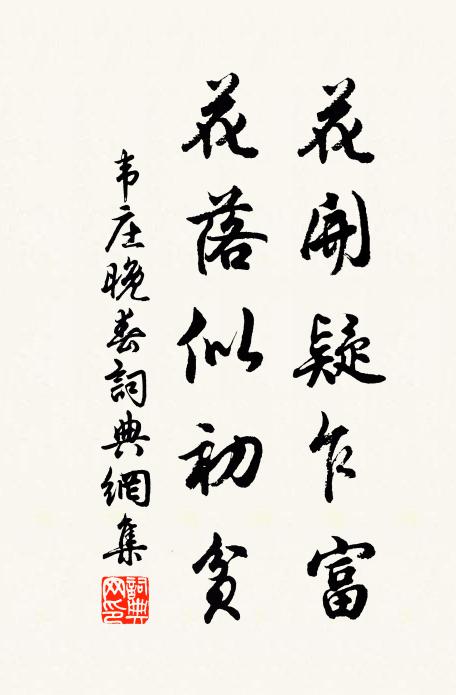 花開疑乍富
花落似初貧
韦庄晚春詞典網集
詞典網印